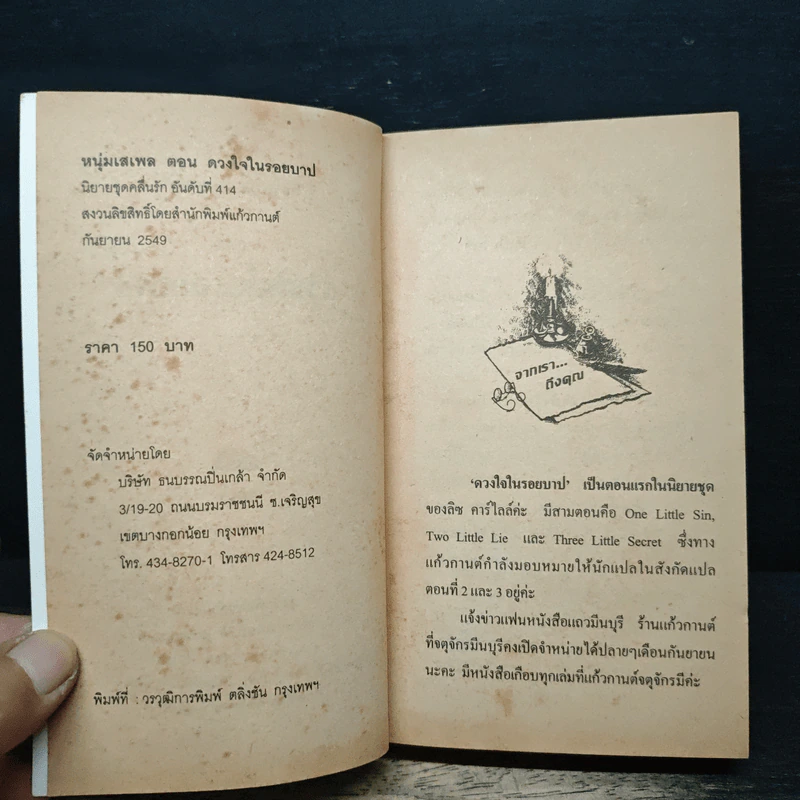 หนุ่มเสเพล ตอน ดวงใจในรอยบาป
นิยายชุดคลื่นรัก อันดับที่ 414
สงวนลิขสิทธิ์โดยสำนักพิมพ์แก้วกานต์
กันยายน 2549
ราคา 150 บาท
จัดจำหน่ายโดย
บริษัท ธนบรรณปิ่นเกล้า จำกัด
3/19-20 ถนนบรมราชชนนี ซ.เจริญสุข
เขตบางกอกน้อย กรุงเทพฯ
โทร. 434-8270-1 โทรสาร 424-8512
พิมพ์ที่ : วรวุฒิการพิมพ์ ตลิ่งชัน กรุงเทพฯ
จากเรา...
ถึงคุณ
'ดวงใจในรอยบาป' เป็นตอนแรกในนิยายชุด
ของลิซ คาร์ไลล์ค่ะ มีสามตอนคือ One Little Sin,
Two Little Lie และ Three Little Secret ซึ่งทาง
แก้วกานต์กำลังมอบหมายให้นักแปลในสังกัดแปล
ตอนที่ 2 และ 3 อยู่ค่ะ
แจ้งข่าวแฟนหนังสือแถวมีนบุรี ร้านแก้วกานต์
ที่จตุจักรมีนบุรีคงเปิดจำหน่ายได้ปลายๆเดือนกันยายน
นะคะ มีหนังสือเกือบทุกเล่มที่แก้วกานต์จตุจักรมีค่ะ